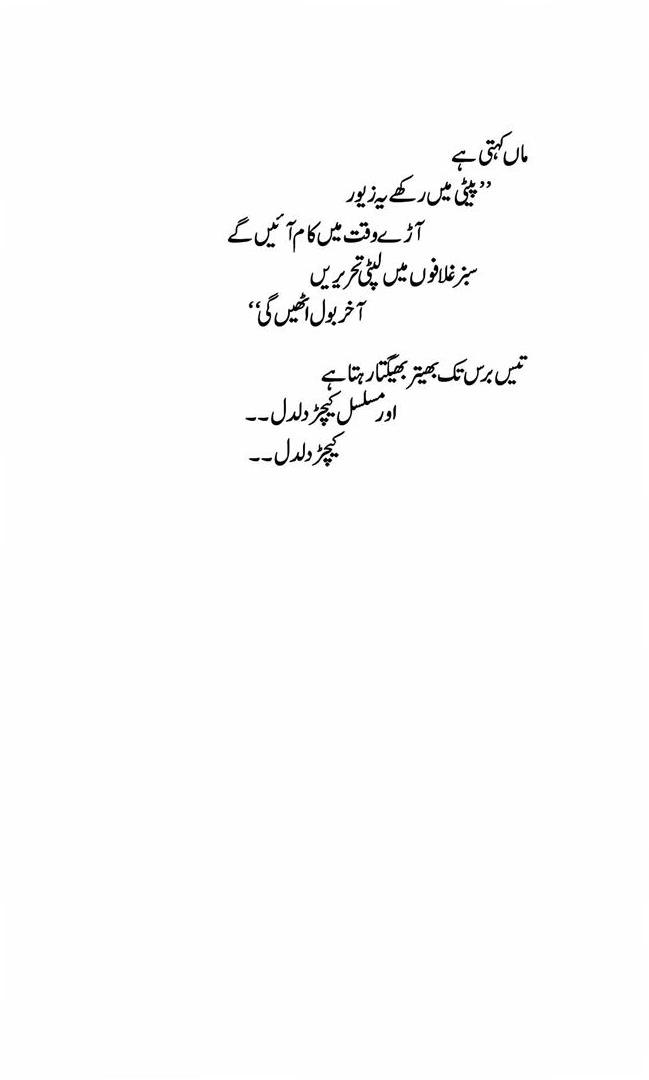 ماں کہتی ہے
’’پیٹی میں رکھے یہ زیور
آڑے وقت میں کام آئیں گے
سبز غلافوں میں لپٹی تحریریں
آخر بول اٹھیں گی‘‘
تیس برس تک بھیتر بھیگتا رہتا ہے
اور مسلسل کیچڑ دلدل۔۔
کیچڑ دلدل۔۔